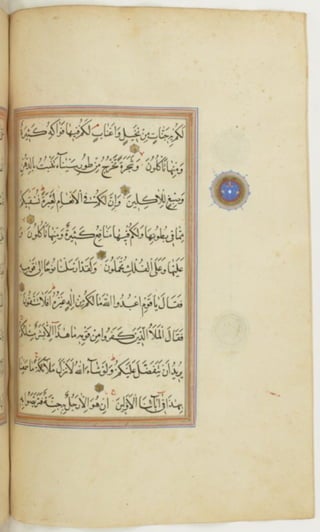 لَكُم بِهِ جَنَّاتٍ مِن نَخِيلٍ وَأَعْنَابٍ لَكُمْ فِيهَا فَوَاكِهُ كَثِيرَةٌ
وَمِنْهَا تَأْكُلُونَ وَشَجَرَةً تَخْرُجُ مِن طُورِ سَيْنَاءَ تَنْبُتُ بِالدُّهْنِ
وَصِبْغٍ لِلْآكِلِينَ وَإِنَّ لَكُمْ فِي الْأَنْعَامِ لَعِبْرَةً نُسْقِيكُم
مِمَّا فِي بُطُونِهَا وَلَكُمْ فِيهَا مَنَافِعُ كَثِيرَةٌ وَمِنْهَا تَأْكُلُونَ وَ
عَلَيْهَا وَعَلَى الْفُلْكِ تُحْمَلُونَ وَلَقَدْ أَرْسَلْنَا نُوحًا إِلَى قَوْمِهِ
فَقَالَ يَا قَوْمِ اعْبُدُوا اللَّهَ مَا لَكُم مِنْ إِلَهٍ غَيْرُهُ أَفَلَا تَتَّقُونَ
فَقَالَ الْمَلَأُ الَّذِينَ كَفَرُوا مِن قَوْمِهِ مَا هَذَا إِلَّا بَشَرٌ مِثْلُكُمْ
يُرِيدُ أَن يَتَفَضَّلَ عَلَيْكُمْ وَلَوْ شَاءَ اللَّهُ لَأَنْزَلَ مَلَائِكَةً مَا سَمِعْنَا
بِهَذَا فِي آبَائِنَا الْأَوَّلِينَ إِنْ هُوَ إِلَّا رَجُلٌ بِهِ جِنَّةٌ فَتَرَبَّصُوا بِهِ